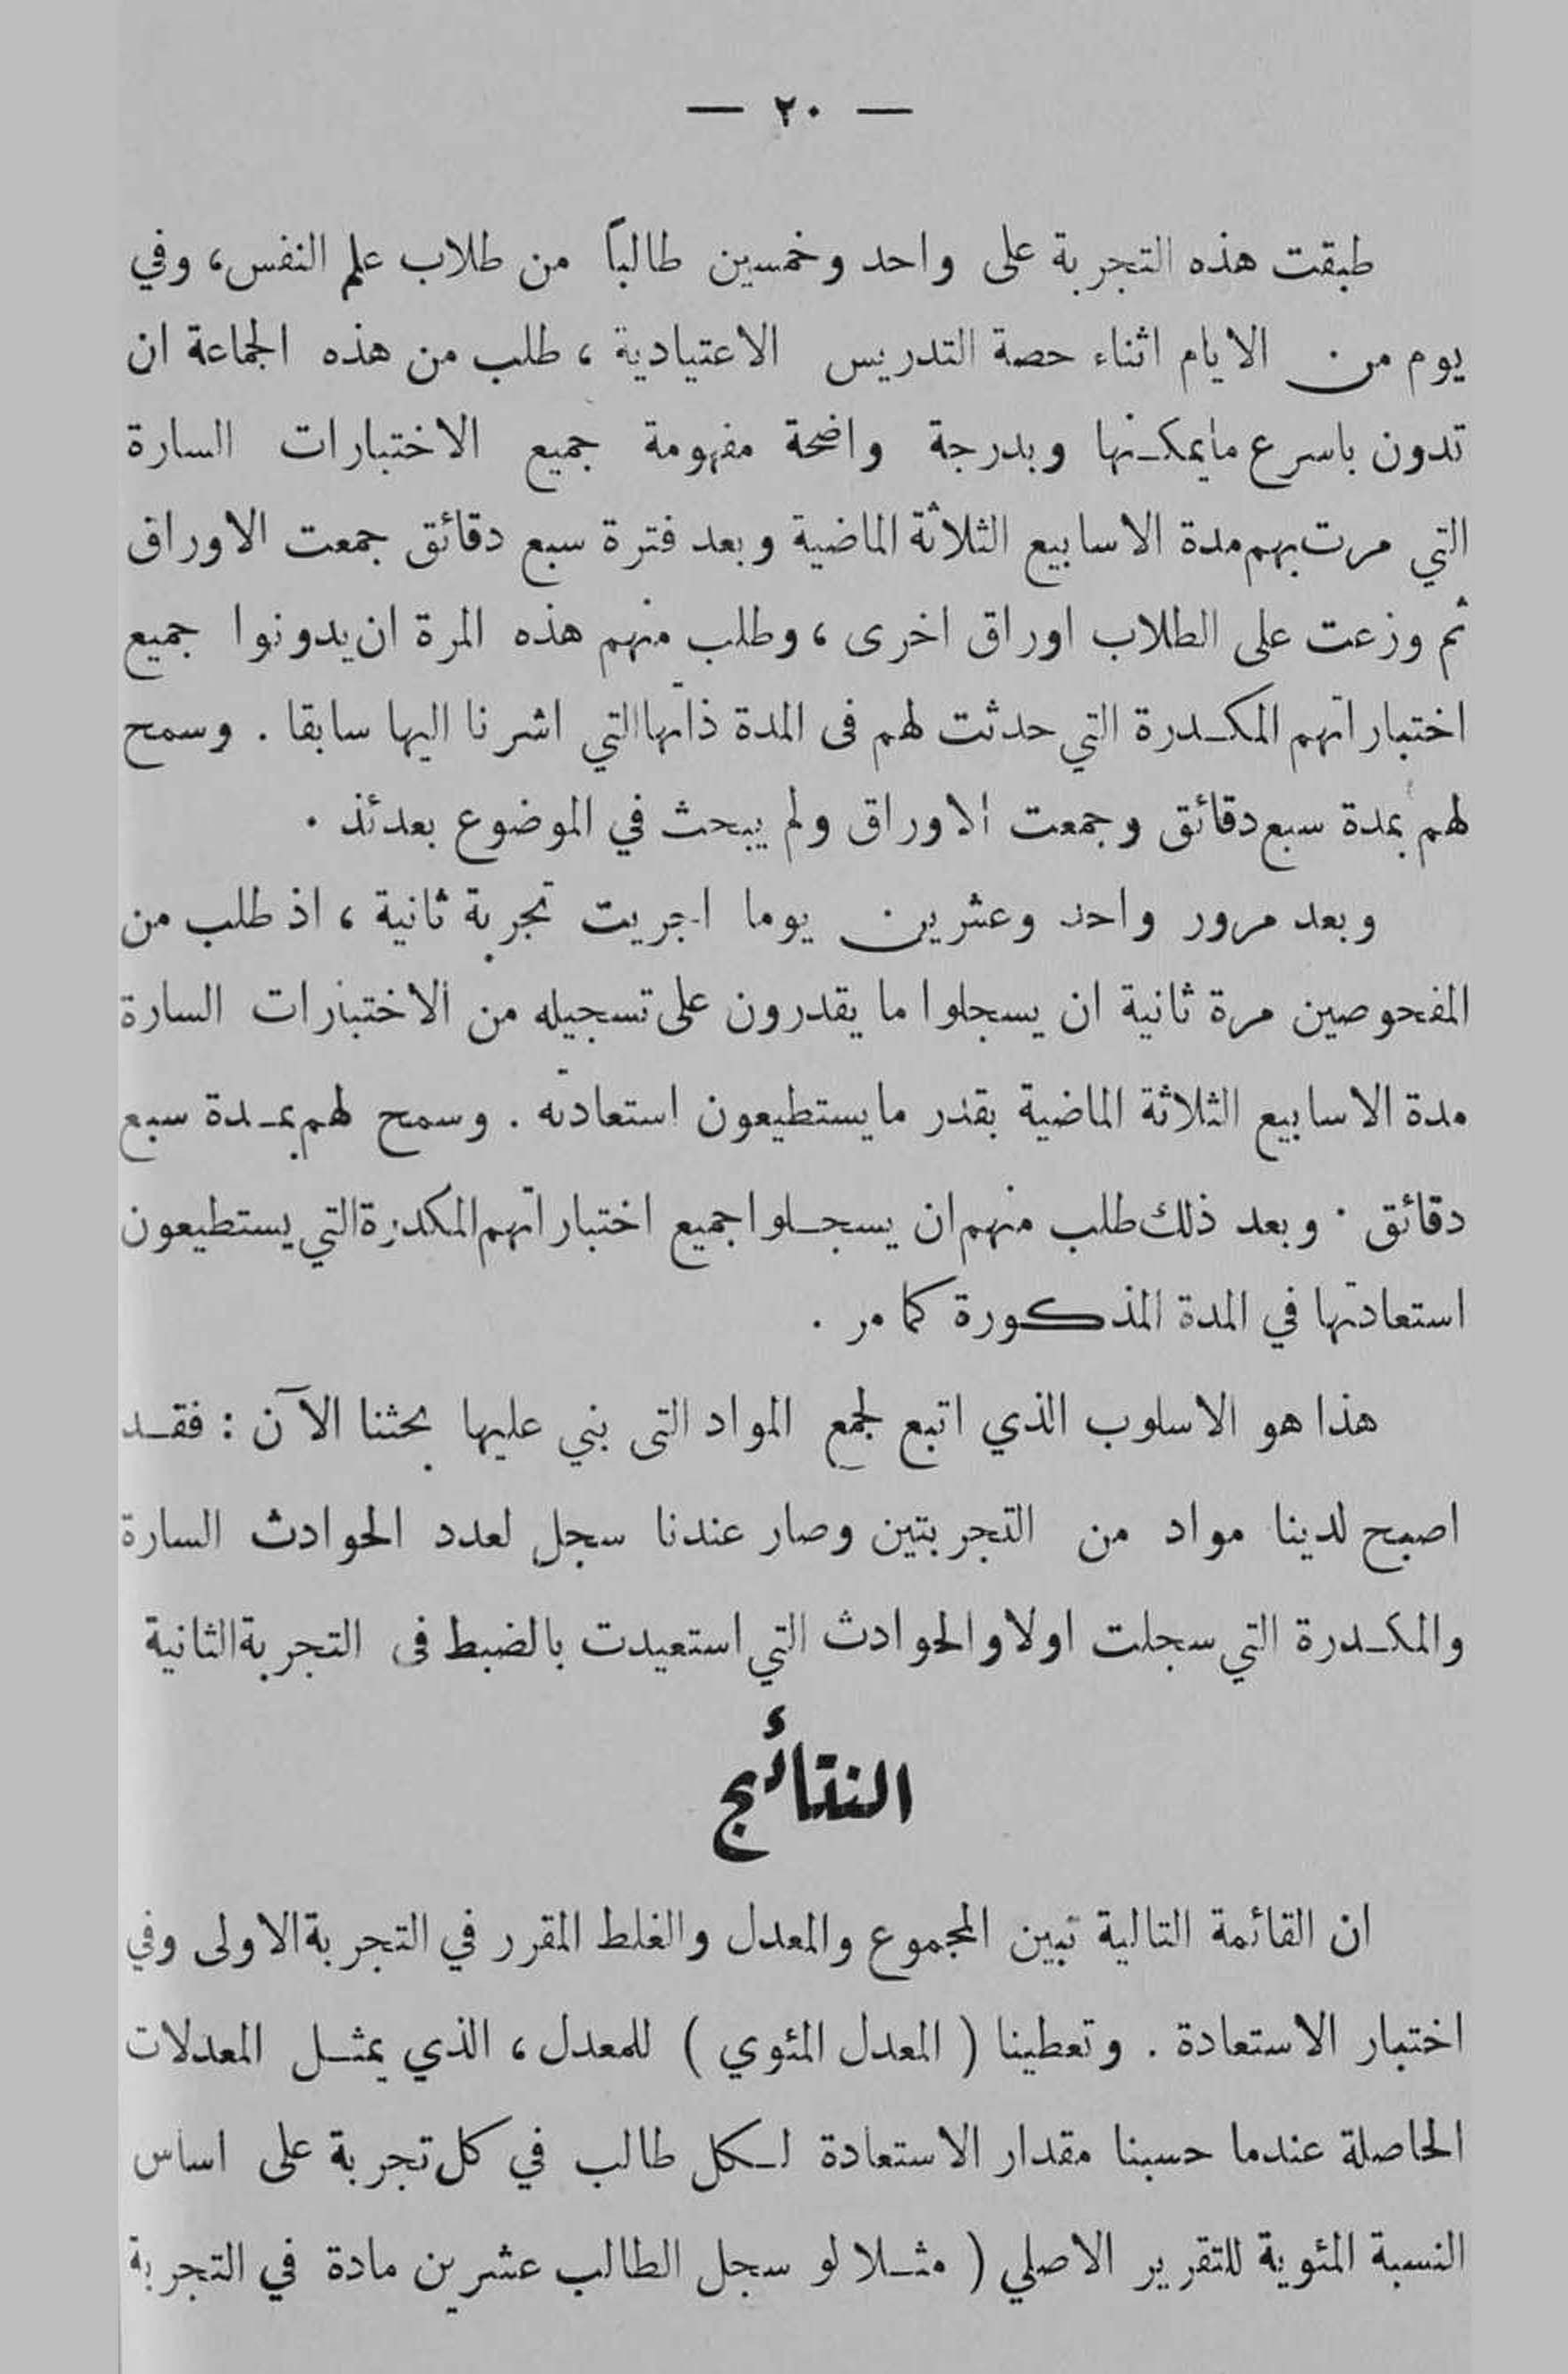 — ٢٠ —
طبقت هذه التجربة على واحد وخمسين طالباً من طلاب علم النفس، وفي
يوم من الايام اثناء حصة التدريس الاعتيادية ، طلب من هذه الجماعة ان
تدون باسرع مايمكنها وبدرجة واضحة مفهومة جميع الاختبارات السارة
التي مرت بهم مدة الاسابيع الثلاثة الماضية وبعد فترة سبع دقائق جمعت الاوراق
ثم وزعت على الطلاب اوراق اخرى ، وطلب منهم هذه المرة ان يدونوا جميع
اختباراتهم المكدرة التي حدثت لهم فى المدة ذاتها التي اشرنا اليها سابقا . وسمح
لهم بمدة سبع دقائق وجمعت الاوراق ولم يبحث في الموضوع بعدئذ .
وبعد مرور واحد وعشرين يوما اجريت تجربة ثانية ، اذ طلب من
المفحوصين مرة ثانية ان يسجلوا ما يقدرون على تسجيله من الاختبارات السارة
مدة الاسابيع الثلاثة الماضية بقدر ما يستطيعون استعادته . وسمح لهم بمدة سبع
دقائق . وبعد ذلك طلب منهم ان يسجلوا جميع اختباراتهم المكدرة التي يستطيعون
استعادتها في المدة المذكورة كما مر .
هذا هو الاسلوب الذي اتبع لجمع المواد التى بني عليها بحثنا الآن : فقد
اصبح لدينا مواد من التجربتين وصار عندنا سجل لعدد الحوادث السارة
والمكدرة التي سجلت اولا والحوادث التي استعيدت بالضبط فى التجربة الثانية
النتائج
ان القائمة التالية تبين المجموع والمعدل والغلط المقرر في التجربة الاولى وفي
اختبار الاستعادة . وتعطينا ( المعدل المئوي ) للمعدل ، الذي يمثل المعدلات
الحاصلة عندما حسبنا مقدار الاستعادة لكل طالب في كل تجربة على اساس
النسبة المئوية للتقرير الاصلي ( مثلا لو سجل الطالب عشرين مادة في التجربة